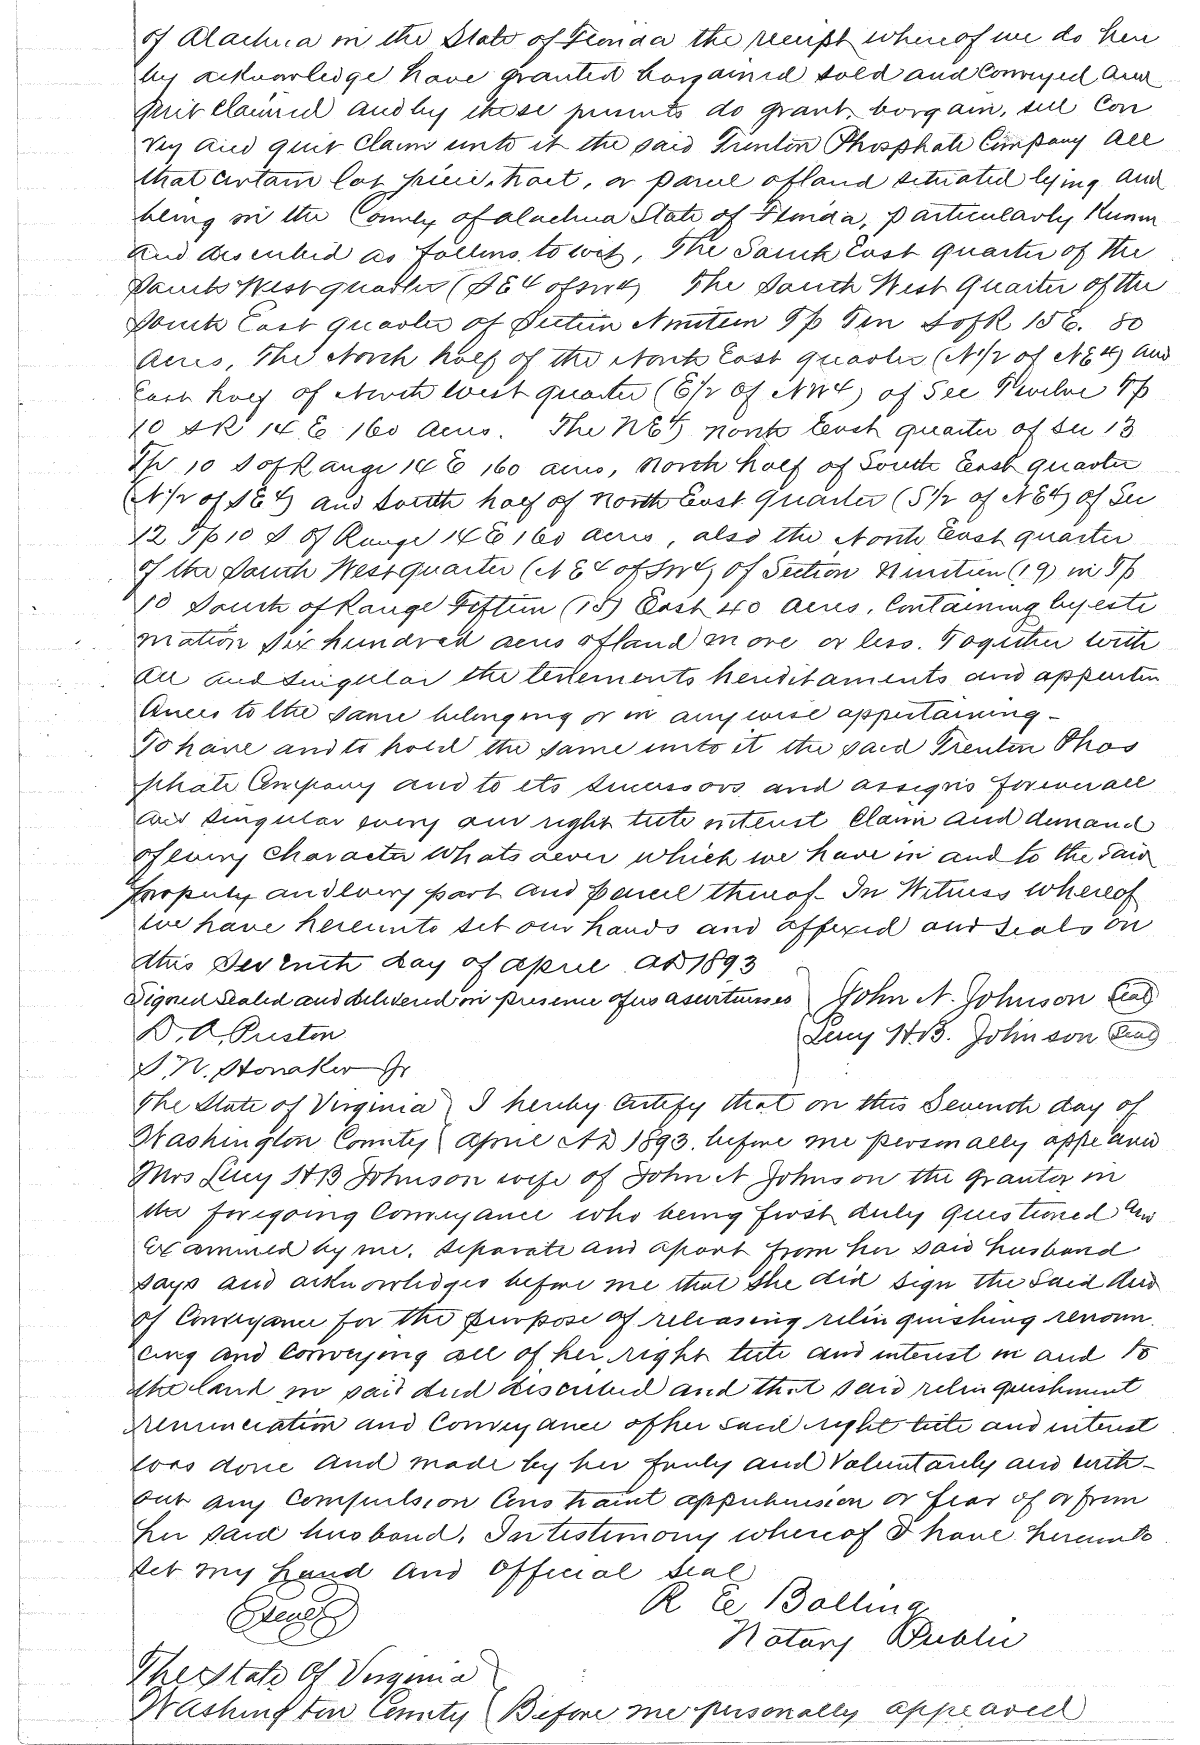 of Alachua in the State of Florida the receipt whereof we do here
by acknowledge have granted bargained sold and conveyed and
quit claimed and by these presents do grant, bargain, sell Con
vey and quit claim unto it the said Trenton Phosphate Company all
that certain lot piece, tract, or parcel of land situated lying and
being in the County of Alachua State of Florida, particularly Known
and described as follows to wit, The South East quarter of the
South West quarter (SE4 of SW4) The South West Quarter of the
South East quarter of Section Nineteen Tp Ten S of R 15 E. 80
acres, The North half of the North East quarter (N 1/2 of NE4) and
East half of North west quarter (E 1/2 of NW4) of Sec Twelve Tp
10 S R 14 E 160 acres. The NE4 North East quarter of Sec 13
Tp 10 S of Range 14 E 160 acres, North half of South East quarter
(N 1/2 of SE4) and South half of North East Quarter (S 1/2 of NE4) of Sec
12 Tp 10 S of Range 14 E 160 acres, also the North East quarter
of the South West quarter (NE4 of SW4) of Section Nineteen (19) in Tp
10 South of Range Fifteen (15) East 40 acres. Containing by esti
mation six hundred acres of land more or less. Together with
all and singular the tenements hereditaments and appurten
ances to the same belonging or in anywise appertaining -
To have and to hold the same unto it the said Trenton Phos
phate Company and to its successors and assigns forever all
and singular every our right title interest Claim and demand
of every Character whatsoever which we have in and to the said
property and every part and parcel thereof - In Witness whereof
we have hereunto set our hands and affixed our seals on
this Seventh day of April AD 1893
Signed Sealed and delivered in presence of us as witnesses } John A. Johnson (Seal)
D. A. Preston } Lucy H.B. Johnson (Seal)
S. N. Honaker Jr
The State of Virginia } I hereby certify that on this Seventh day of
Washington County } April AD 1893. before me personally appeared
Mrs Lucy H B Johnson wife of John A Johnson the grantor in
the foregoing Conveyance who being first duly questioned and
examined by me, separate and apart from her said husband
says and acknowledges before me that she did sign the said deed
of Conveyance for the purpose of releasing relinquishing renoun
cing and Conveying all of her right title and interest in and to
the land in said deed described and that said relinquishment
renunciation and Conveyance of her said right title and interest
was done and made by her freely and Voluntarily and with-
out any Compulsion Constraint apprehension or fear of or from
her said husband. In testimony whereof I have hereunto
set my hand and official seal
(Seal) R E Bolling
Notary Public
The State of Virginia }
Washington County } Before me personally appeared